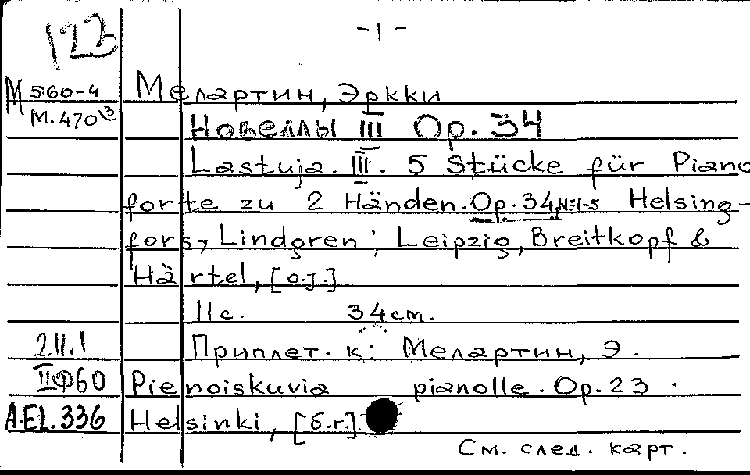 123 - 1 -
М 560-4 Мелартин, Эркки
М.470 Новеллы III Op. 34
Lastuja. III. 5 Stücke für Piano
forte zu 2 Händen. Op. 34, №1-5 Helsing-
fors, Lindgren; Leipzig, Breitkopf &
Härtel, [o.J.]
11 с. 34 см.
2.11.1 Приплет. к: Мелартин, Э.
IIФ60 Pienoiskuvia pianolle. Op. 23.
A.EL.336 Helsinki, [б.г.]
См. след. карт.